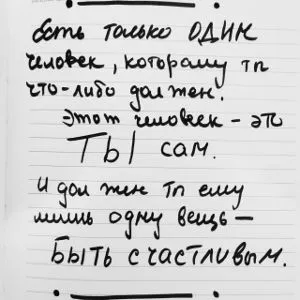 есть только ОДИН
человек, которому ты
что-либо должен.
Этот человек - это
ТЫ сам.
И должен ты ему
лишь одну вещь —
БЫТЬ СЧАСТЛИВЫМ.